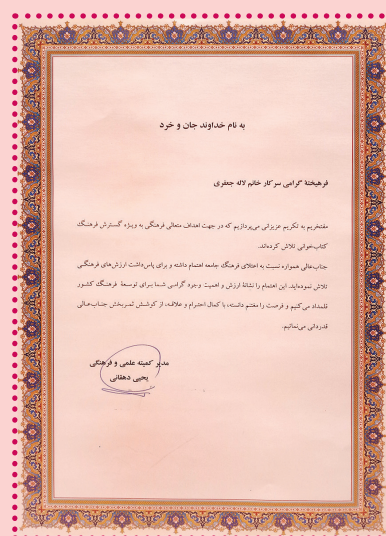 به نام خداوند جان و خرد
فرهیختهٔ گرامی سرکار خانم لاله جعفری
مفتخریم به تکریم عزیزانی می‌پردازیم که در جهت اهداف متعالی فرهنگی به ویژه گسترش فرهنگ
کتاب‌خوانی تلاش کرده‌اند.
جناب‌عالی همواره نسبت به اعتلای فرهنگ جامعه اهتمام داشته و برای پاس‌داشت ارزش‌های فرهنگی
تلاش نموده‌اید. این اهتمام را نشانهٔ ارزش و اهمیت وجود گرامی شما برای توسعهٔ فرهنگ کشور
قلمداد می‌کنیم و فرصت را مغتنم دانسته، با کمال احترام و علاقه، از کوشش ثمربخش جناب‌عالی
قدردانی می‌نمائیم.
مدیر کمیته علمی و فرهنگی
یحیی دهقانی